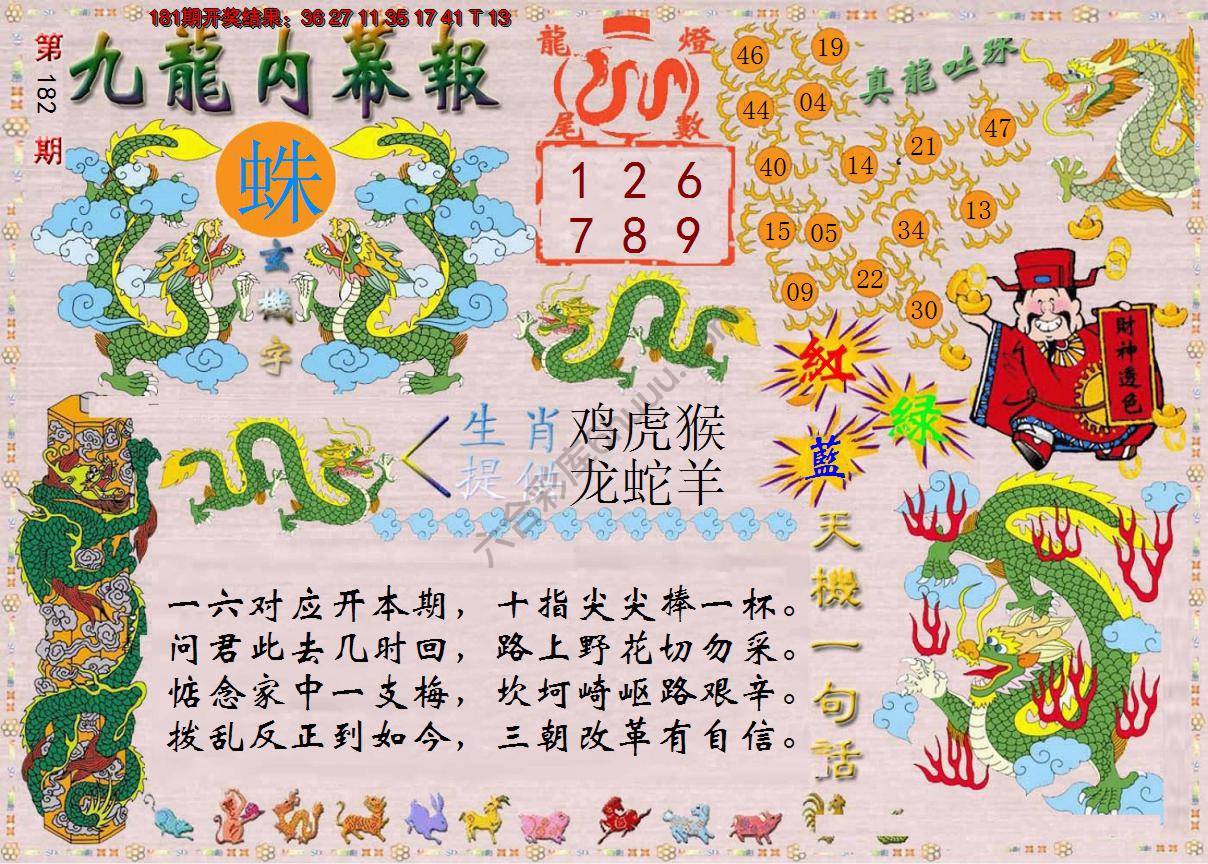 181期开奖结果：36 27 11 35 17 41 T 13
第182期
九龍内幕報
蛛
玄機字
龍燈尾數
1 2 6
7 8 9
真龍吐珠
46 19
44 04
40 14 21 47
15 05 34 13
09 22 30
財神透色
紅
綠
藍
生肖 鸡虎猴
提供 龙蛇羊
天機一句話
一六对应开本期，十指尖尖捧一杯。
问君此去几时回，路上野花切勿采。
惦念家中一支梅，坎坷崎岖路艰辛。
拨乱反正到如今，三朝改革有自信。